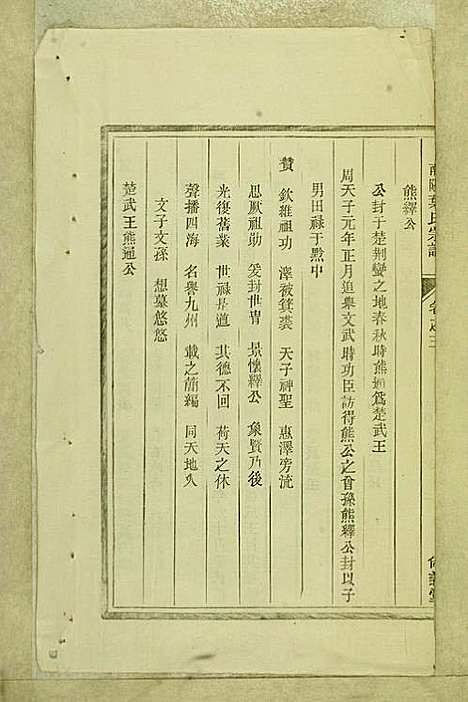 南陽葉氏宗譜
熊繹公
公封于楚荆蠻之地春秋時熊通爲楚武王
周天子元年正月追舉文武時功臣訪得熊公之曾孫熊繹公封以子
男田祿于黔中
贊 欽維祖功 澤被箕裘 天子神聖 惠澤旁流
思厥祖勛 爰封世胄 景懷繹公 象賢乃後
光復舊業 世祿是遒 其德不回 荷天之休
聲播四海 名舉九州 載之簡編 同天地久
文子文孫 想墓悠悠
楚武王熊通公